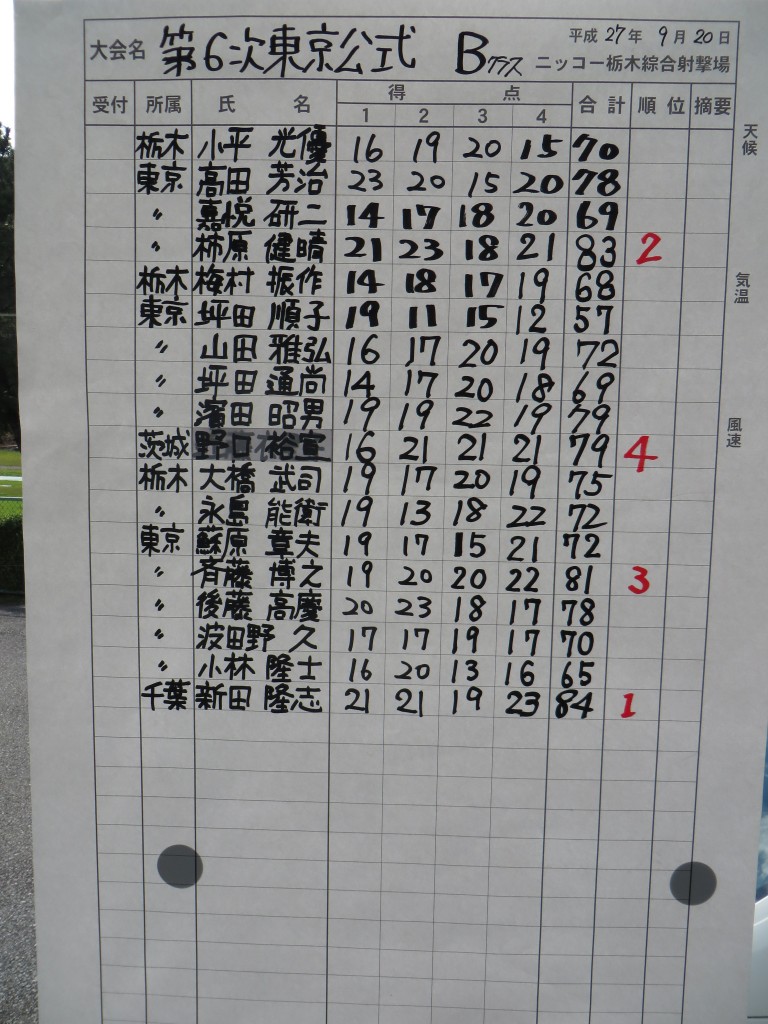 大会名 第6次東京公式 Bクラス 平成27年 9月20日
ニッコー栃木綜合射撃場
受付 所属 氏名 得点 合計 順位 摘要
1 2 3 4
栃木 小平 光優 16 19 20 15 70
東京 高田 芳治 23 20 15 20 78
〃 嘉悦 研二 14 17 18 20 69
〃 柿原 健晴 21 23 18 21 83 2
栃木 梅村 振作 14 18 17 19 68
東京 坪田 順子 19 11 15 12 57
〃 山田 雅弘 16 17 20 19 72
〃 坪田 通尚 14 17 20 18 69
〃 濱田 昭男 19 19 22 19 79
茨城 野口 裕宣 16 21 21 21 79 4
栃木 大橋 武司 19 17 20 19 75
〃 永島 能衛 19 13 18 22 72
東京 蘇原 章夫 19 17 15 21 72
〃 斉藤 博之 19 20 20 22 81 3
〃 後藤 高慶 20 23 18 17 78
〃 波田野 久 17 17 19 17 70
〃 小林 隆士 16 20 13 16 65
千葉 新田 隆志 21 21 19 23 84 1
天候
気温
風速